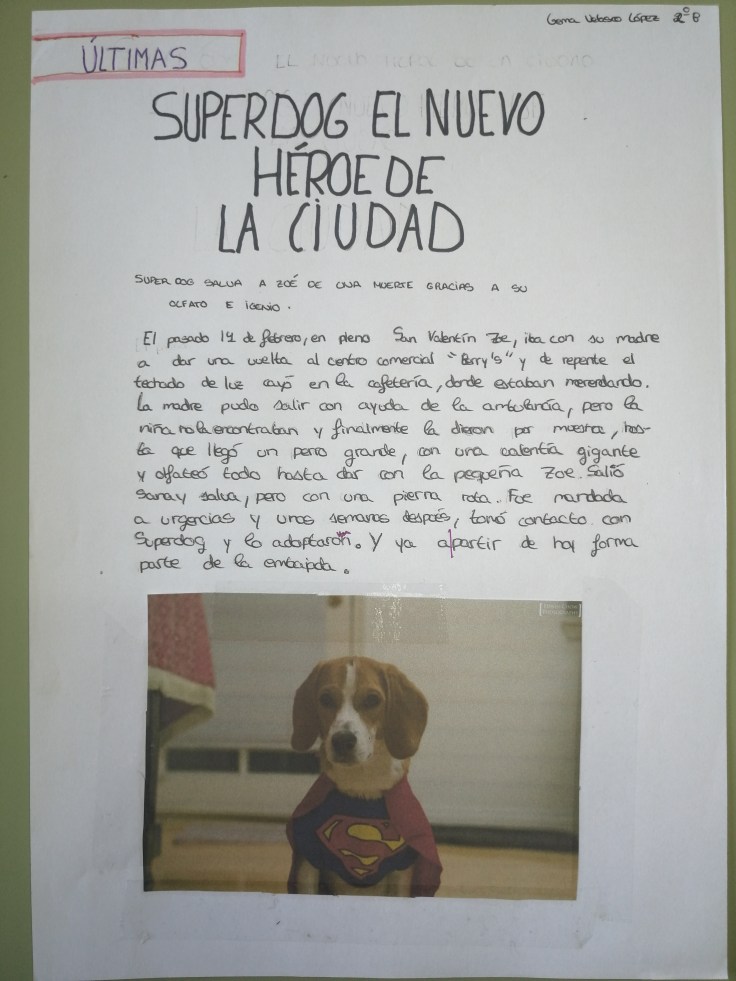 Gema Velasco López 2º B
ÚLTIMAS
SUPERDOG EL NUEVO
HÉROE DE
LA CIUDAD
SUPER DOG SALVA A ZOÉ DE UNA MUERTE GRACIAS A SU
OLFATO E IGENIO.
El pasado 14 de febrero, en pleno San Valentín Zoe, iba con su madre
a dar una vuelta al centro comercial "Berry's" y de repente el
techado de luz cayó en la cafetería, donde estaban merendando.
La madre pudo salir con ayuda de la ambulancia, pero la
niña no la encontraban y finalmente la dieron por muerta, has-
ta que llegó un perro grande, con una valentía gigante
y olfateó todo hasta dar con la pequeña Zoe. Salió
sana y salva, pero con una pierna rota. Fue mandada
a urgencias y unas semanas después, tomó contacto con
Superdog y lo adoptaron. Y ya a partir de hoy forma
parte de la embajada.
S